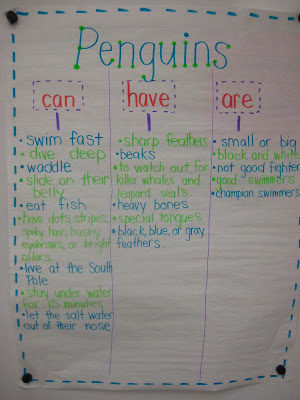 Penguins
can
have
are
• swim fast
• dive deep
• waddle
• slide on their
belly
• eat fish
• have dots, stripes,
spiky hair, bushy
eyebrows, or bright
colors.
• live at the South
Pole
• stay under water
for 15 minutes
• let the salt water
out of their nose
• sharp feathers
• beaks
• to watch out for
killer whales and
leopard seals
• heavy bones
• special tongues
• black, blue, or gray
feathers.
• small or big
• black and white
• not good fighters
• good swimmers
• champion swimmers